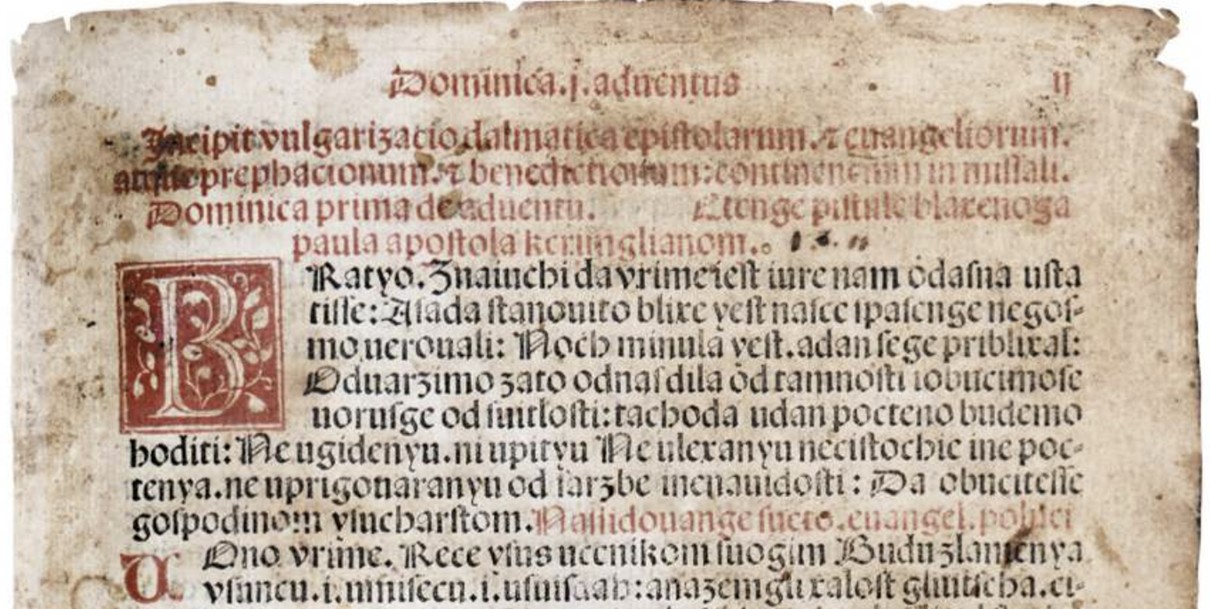 Dominica.j.aduentus ij
Incipit vulgarizacio dalmatica epistolarum.⁊ euangeliorum.
atque prephacionum.⁊ benedictionum:continentium in missali.
Dominica prima de aduentu. Ctenge pistule blaxenoga
paula apostola krimglianom.
BRatyo.Znaiuchi da vrime iest iure nam odasna usta
tisse:A sada stanouito blixe yest nasce spasenge negos-
mo uerouali: Noch minula yest.a dan se ge priblixal:
Oduarzimo zato od nas dila od tamnosti i obucimose
uorusge od suitlosti:tachoda udan pocteno budemo
hoditi: Ne ugidenyu.ni upityu Ne ulexanyu necistochie ine poc-
tenya.ne uprigouaranyu od sarzbe inenauidosti: Da obucitesse
gospodinom ysucharstom.Naslidouange sueto.euangel.po luci
U Ono vrime. Rece ysus uccnikom suogim Budu zlamenya
ysuncu.i.miisecu.i.usuisdah:anazemgli xalost gliutscha.ci-